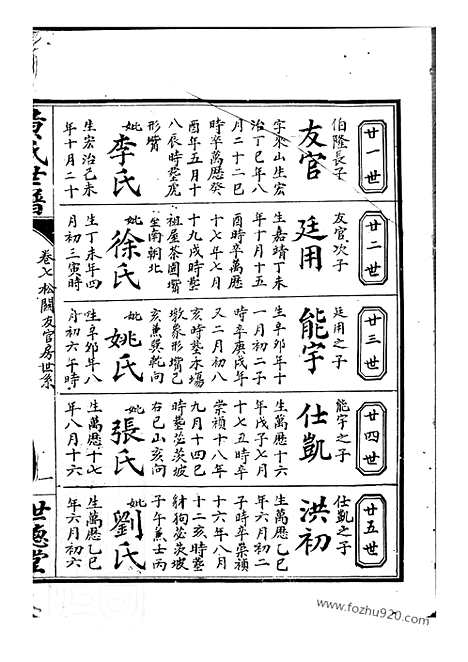 廿一世
伯隆長子
友官
字來山生宏
治丁巳年八
月二十二巳
時卒萬歷癸
酉年五月十
八辰時塟虎
形嘴
妣李氏
生宏治己未
年十月二十
廿二世
友官次子
廷用
生嘉靖丁未
年十月十五
酉時卒萬歷
十七年七月
十九戌時塟
祖屋茶園嘴
坐南朝北
妣徐氏
生丁未年四
月初三寅時
廿三世
廷用之子
能宇
生辛卯年十
一月初二子
時卒庚戌年
又二月初八
亥時塟水塲
墩象形嘴巳
亥兼巽乾向
妣姚氏
生辛卯年八
月初六午時
廿四世
能宇之子
仕凱
生萬歷十六
年戊子七月
十七丑時卒
崇禎十八年
九月十四巳
時塟苾茨坡
右巳山亥向
妣張氏
生萬歷十七
年八月十六
廿五世
仕凱之子
洪初
生萬歷乙巳
年六月初二
子時卒崇禎
十六年八月
十二亥時塟
豺狗苾茨坡
子午兼壬丙
妣劉氏
生萬歷乙巳
年六月初六
黄氏世譜
卷七松關友官房世系
一
世德堂
www.fozhu920.com